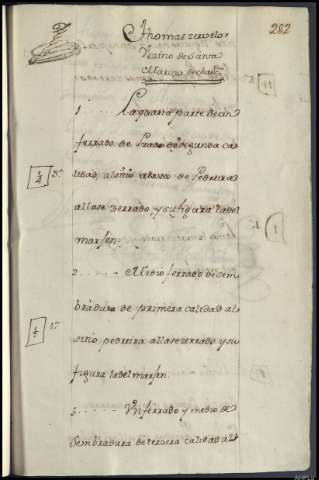 282
Thomas
Vezino de Santa
Maria
1 La quarta parte de un
ferrado de Prado de segunda ca
lidad, al sitio de Pedreira
allase zerrado, y su figura la del
marjen.
2 Medio ferrado de sem
bradura de primera calidad al
sitio pedreira allase zerrado y su
figura la del marjen.
3 Un ferrado y medio de
Sembradura de terzera calidad al